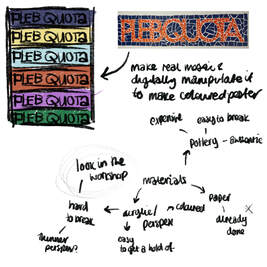 PLEB QUOTA
PLEB QUOTA
PLEB QUOTA
PLEB QUOTA
PLEB QUOTA
PLEB QUOTA
PLEBQUOTA
make real mosaic &
digitally manipulate it
to make coloured poster
expensive
easy to break
Pottery - authentic
look in the
workshop
materials
hard
to break
acrylic/
perspex
coloured
paper
already
done
thinner
perspex?
easy
to get a hold of